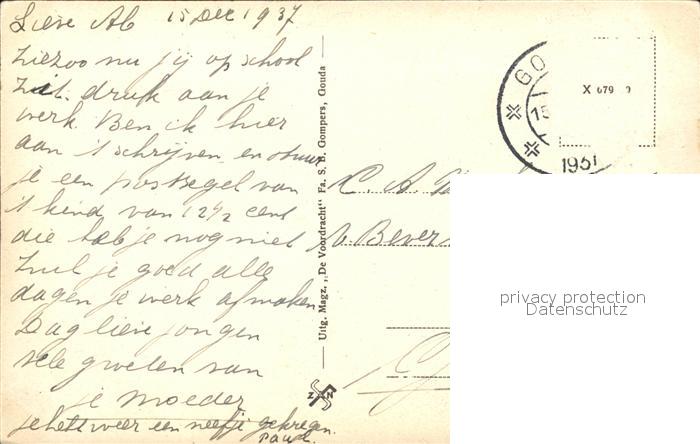 Lieve Ab 15 Dec 1937
Ziezoo nu jij op school
zit druk aan je
werk. Ben ik hier
aan 't schrijven, en stuur
je een postzegel van
't kind van 12 1/2 cent
die heb je nog niet
Zul je goed alle
dagen je werk afmaken
Dag lieve jongen
vele groeten van
je Moeder
je hebt weer een neefje gekregen.
Uitg. Magz. „De Voordracht" Fa. S. B. Gompers, Gouda
Z N
GO
15
1937
X 679
C. A.
privacy protection
Datenschutz